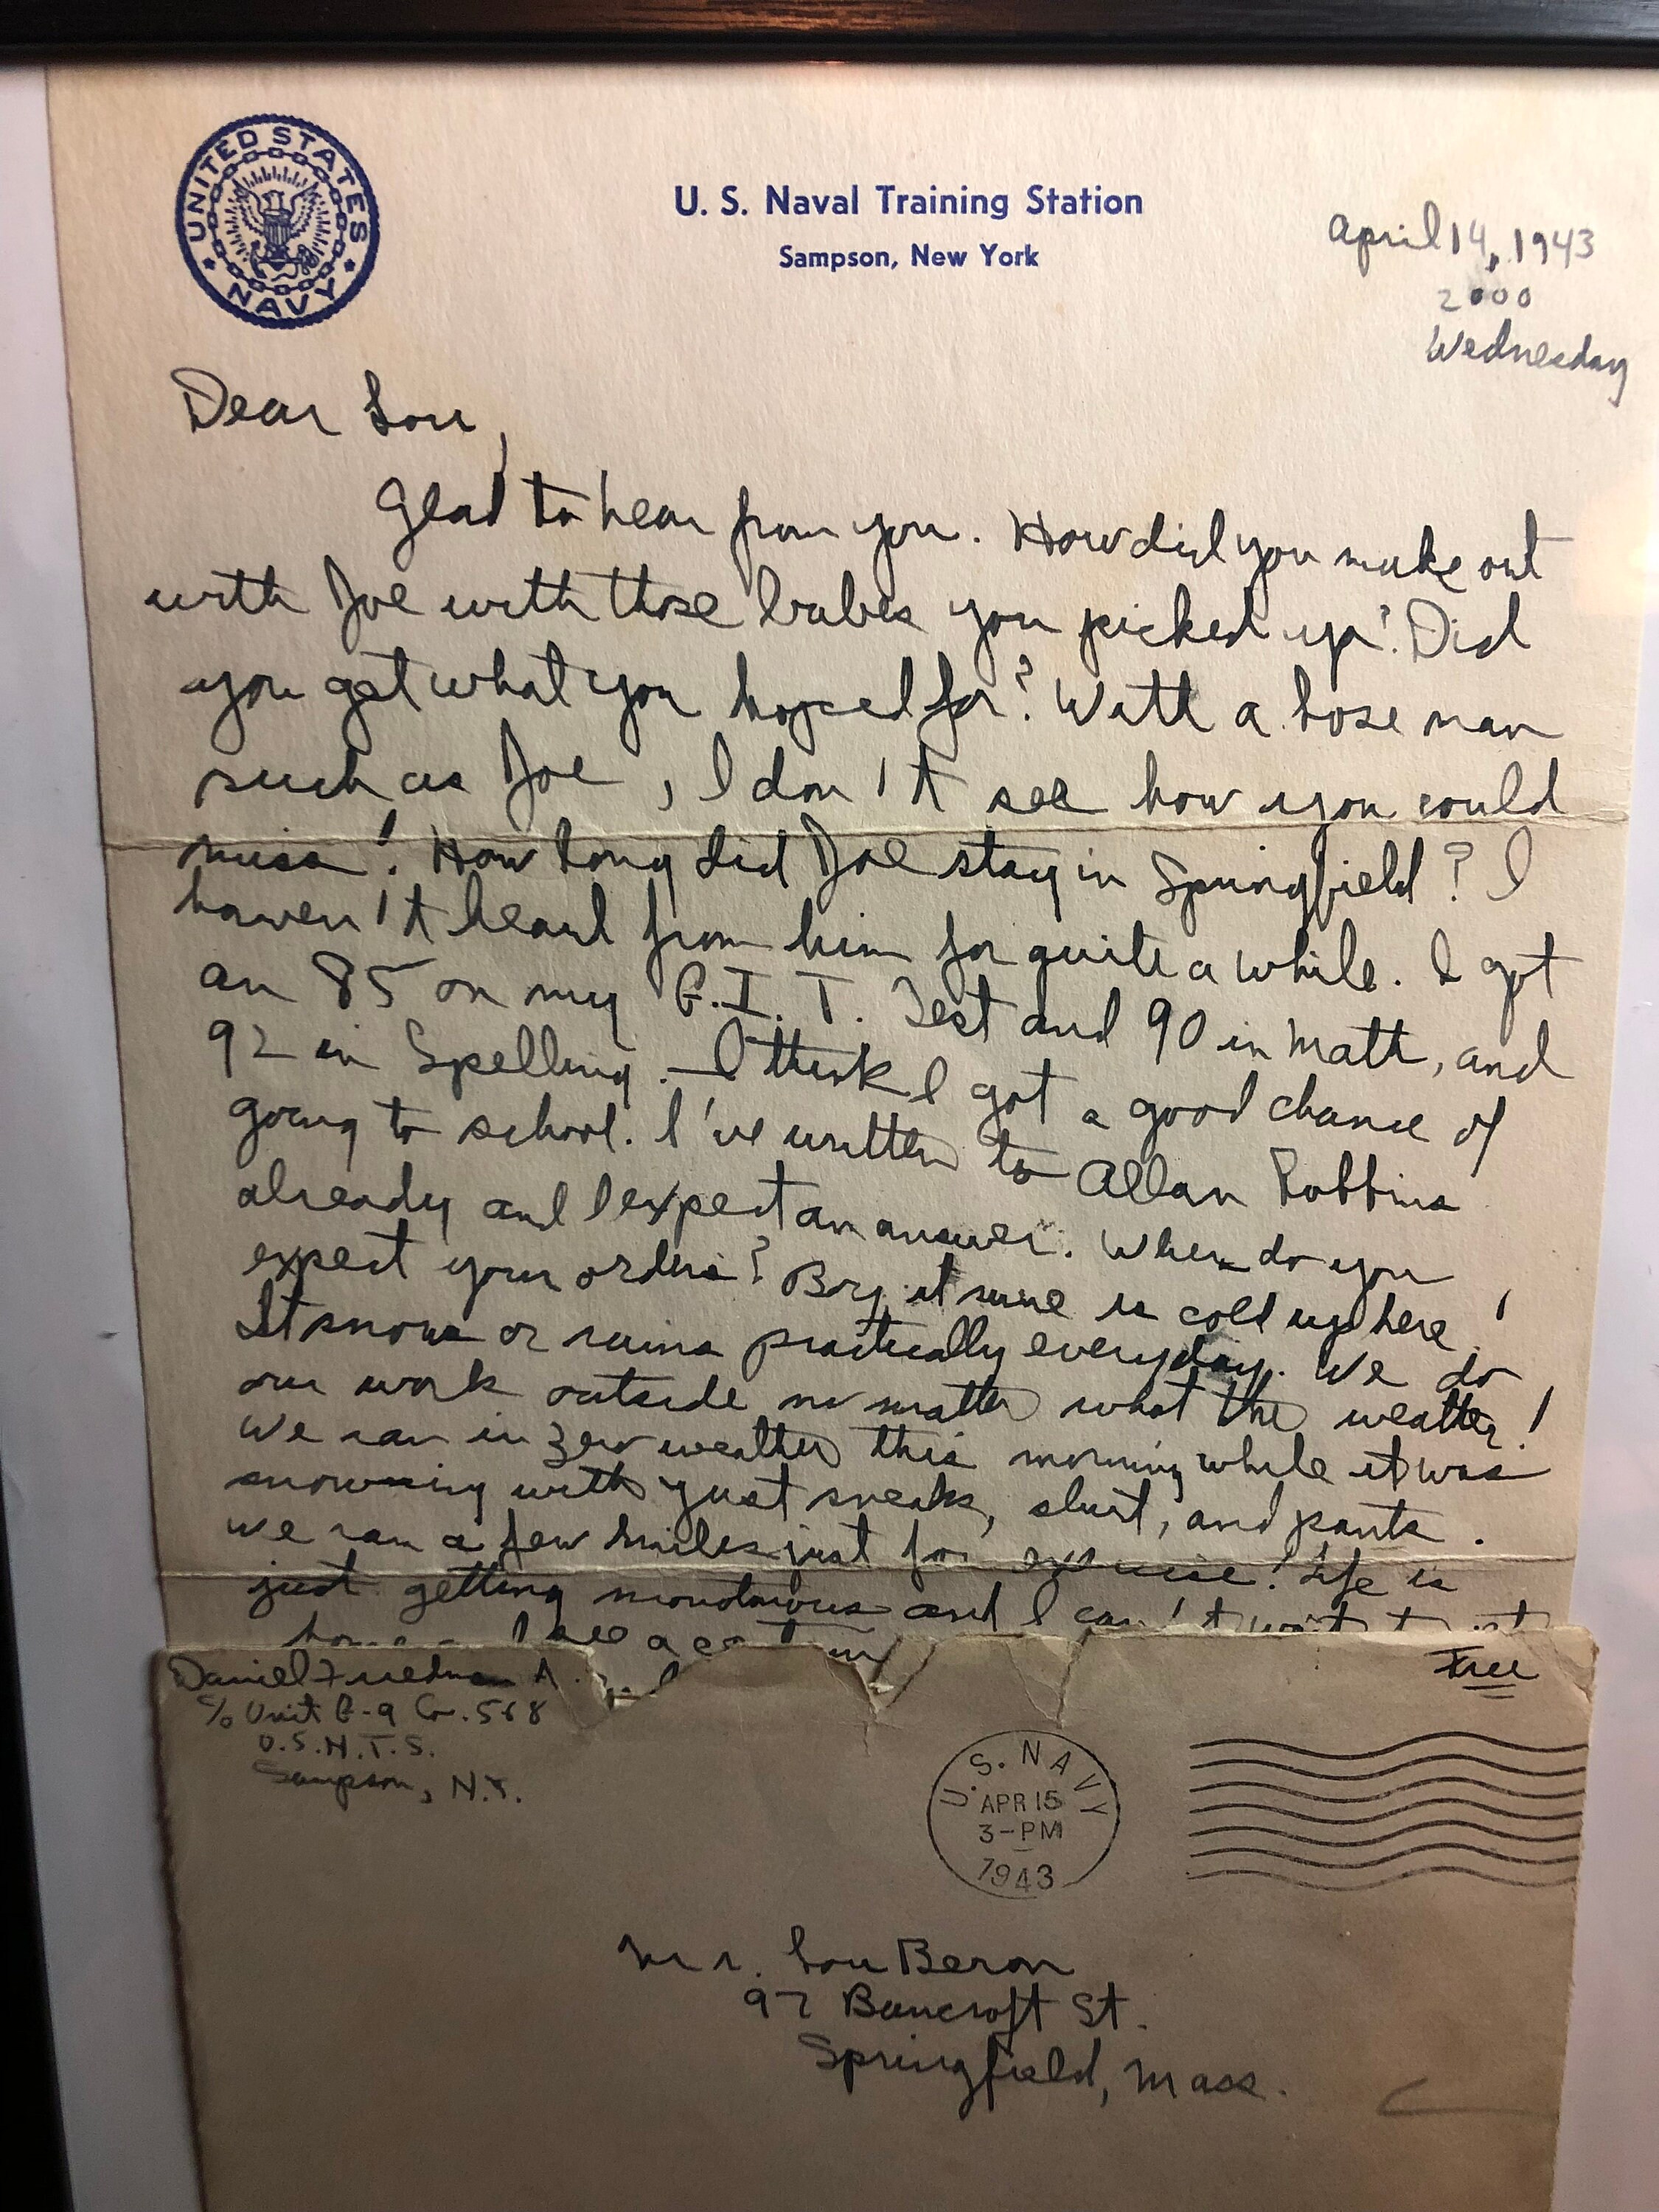 UNITED STATES
NAVY
U. S. Naval Training Station
Sampson, New York
April 14, 1943
2000
Wednesday
Dear Lou,
Glad to hear from you. How did you make out
with Joe with those babes you picked up? Did
you get what you hoped for? With a nose man
such as Joe, I don't see how you could
miss! How long did Joe stay in Springfield? I
haven't heard from him for quite a while. I got
an 85 on my G.I.T. Test and 90 in Math, and
92 in Spelling. — I think I got a good chance of
going to school. I've written to Allan Robbins
already and I expect an answer. When do you
expect your orders? Boy, it sure is cold up here!
It snows or rains practically everyday. We do
our work outside no matter what the weather!
We ran in zero weather this morning while it was
snowing with just sneaks, shirt, and pants.
We ran a few miles just for exercise! Life is
just getting monotonous and I can't wait to get
I see a
Daniel Friedman A.
c/o Unit G-9 Co. 568
U.S.N.T.S.
Sampson, N.Y.
Free
U.S. NAVY
APR 15
3-PM
1943
Mr. Lou Beron
97 Bancroft St.
Springfield, Mass.